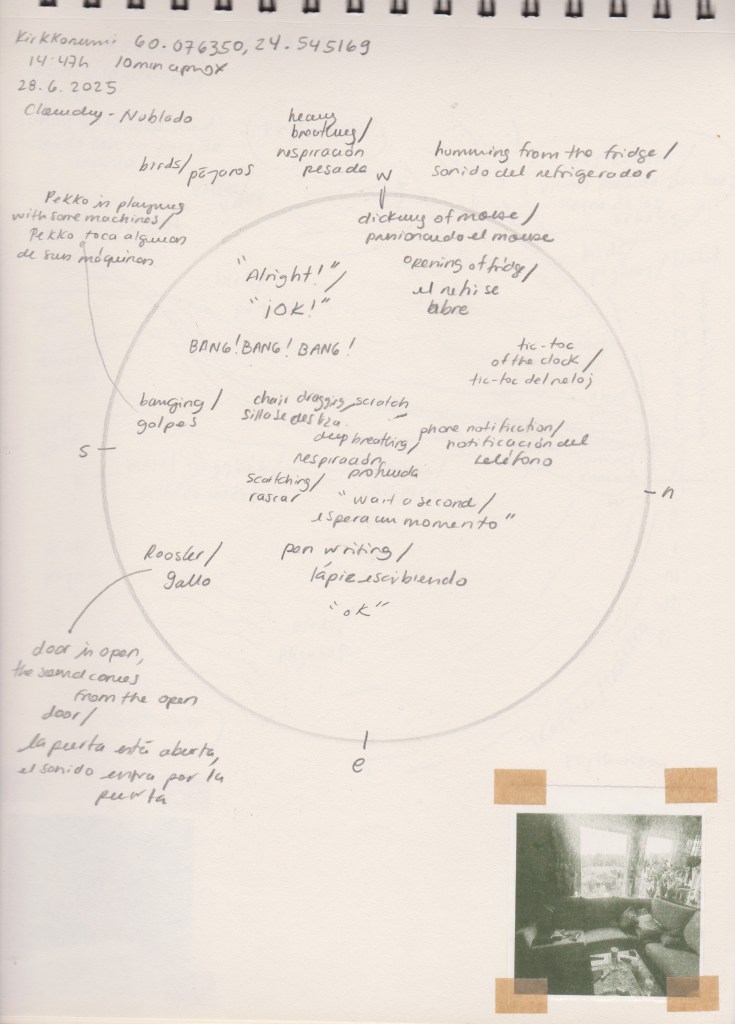 Kirkkonummi 60.076350, 24.545169
14:47h 10min aprox
28.6.2025
Cloudy - Nublado
birds/
pájaros
heavy
breathing/
respiración
pesada
humming from the fridge/
sonido del refrigerador
w
Pekko is playing
with some machines/
Pekko toca algunas
de sus máquinas
clicking of mouse/
presionando el mouse
"Alright!"/
"¡OK!"
opening of fridge/
el refri se
abre
BANG! BANG! BANG!
tic-toc
of the clock/
tic-toc del reloj
banging/
golpes
chair dragging, scratch
silla se desliza
deep breathing/
respiración
profunda
phone notification/
notificación del
teléfono
s
scratching/
rascar
"wait a second/
espera un momento"
n
Rooster/
gallo
pen writing/
lápiz escribiendo
"ok"
door is open,
the sound comes
from the open
door/
la puerta está abierta,
el sonido entra por la
puerta
e